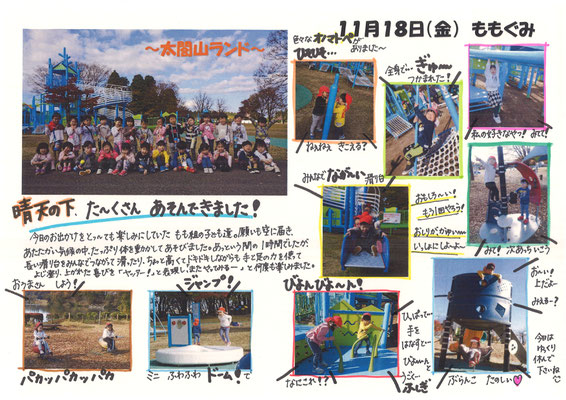 11月18日(金) ももぐみ
～太閤山ランド～
色々なオノマトペが
ありました～
ひそひそ…
ねぇねぇ きこえる?
全身で…ぎゅ～
つかまれた!
私の好きなやつ! みて!
みんなでながーい滑り台
おもしろーい!
もう1回やろう!
おしりがかゆいー
いっしょにしよー
みて! 穴あっちいこう
晴天の下、たーくさん あそんできました!
今日のお出かけをとっても楽しみにしていた もも組の子ども達。願いも空に届き、
あたたかい気候の中、たっぷり体を動かしてあそびました。あっという間の1時間でしたが、
長い滑り台をみんなでつながって滑ったり、ちょっと高くてドキドキしながらも 手と足の力を使って
上に登り、上がれた喜びを「ヤッター!」と表現し「またやってみるー」と何度も楽しみました。
おうまさん しよう!
パカッパカッパカ
ジャンプ!
ミニ ふわふわ ドーム!で
びよんびよーん!
なにこれ!?
ひっぱってー
手を
はなすとー
びよーんと
うごくー
ふしぎ
おーい!
上だよー
みえるー?
ぶらんこ たのしい♡
今日は
ゆっくり
休んで
下さいね